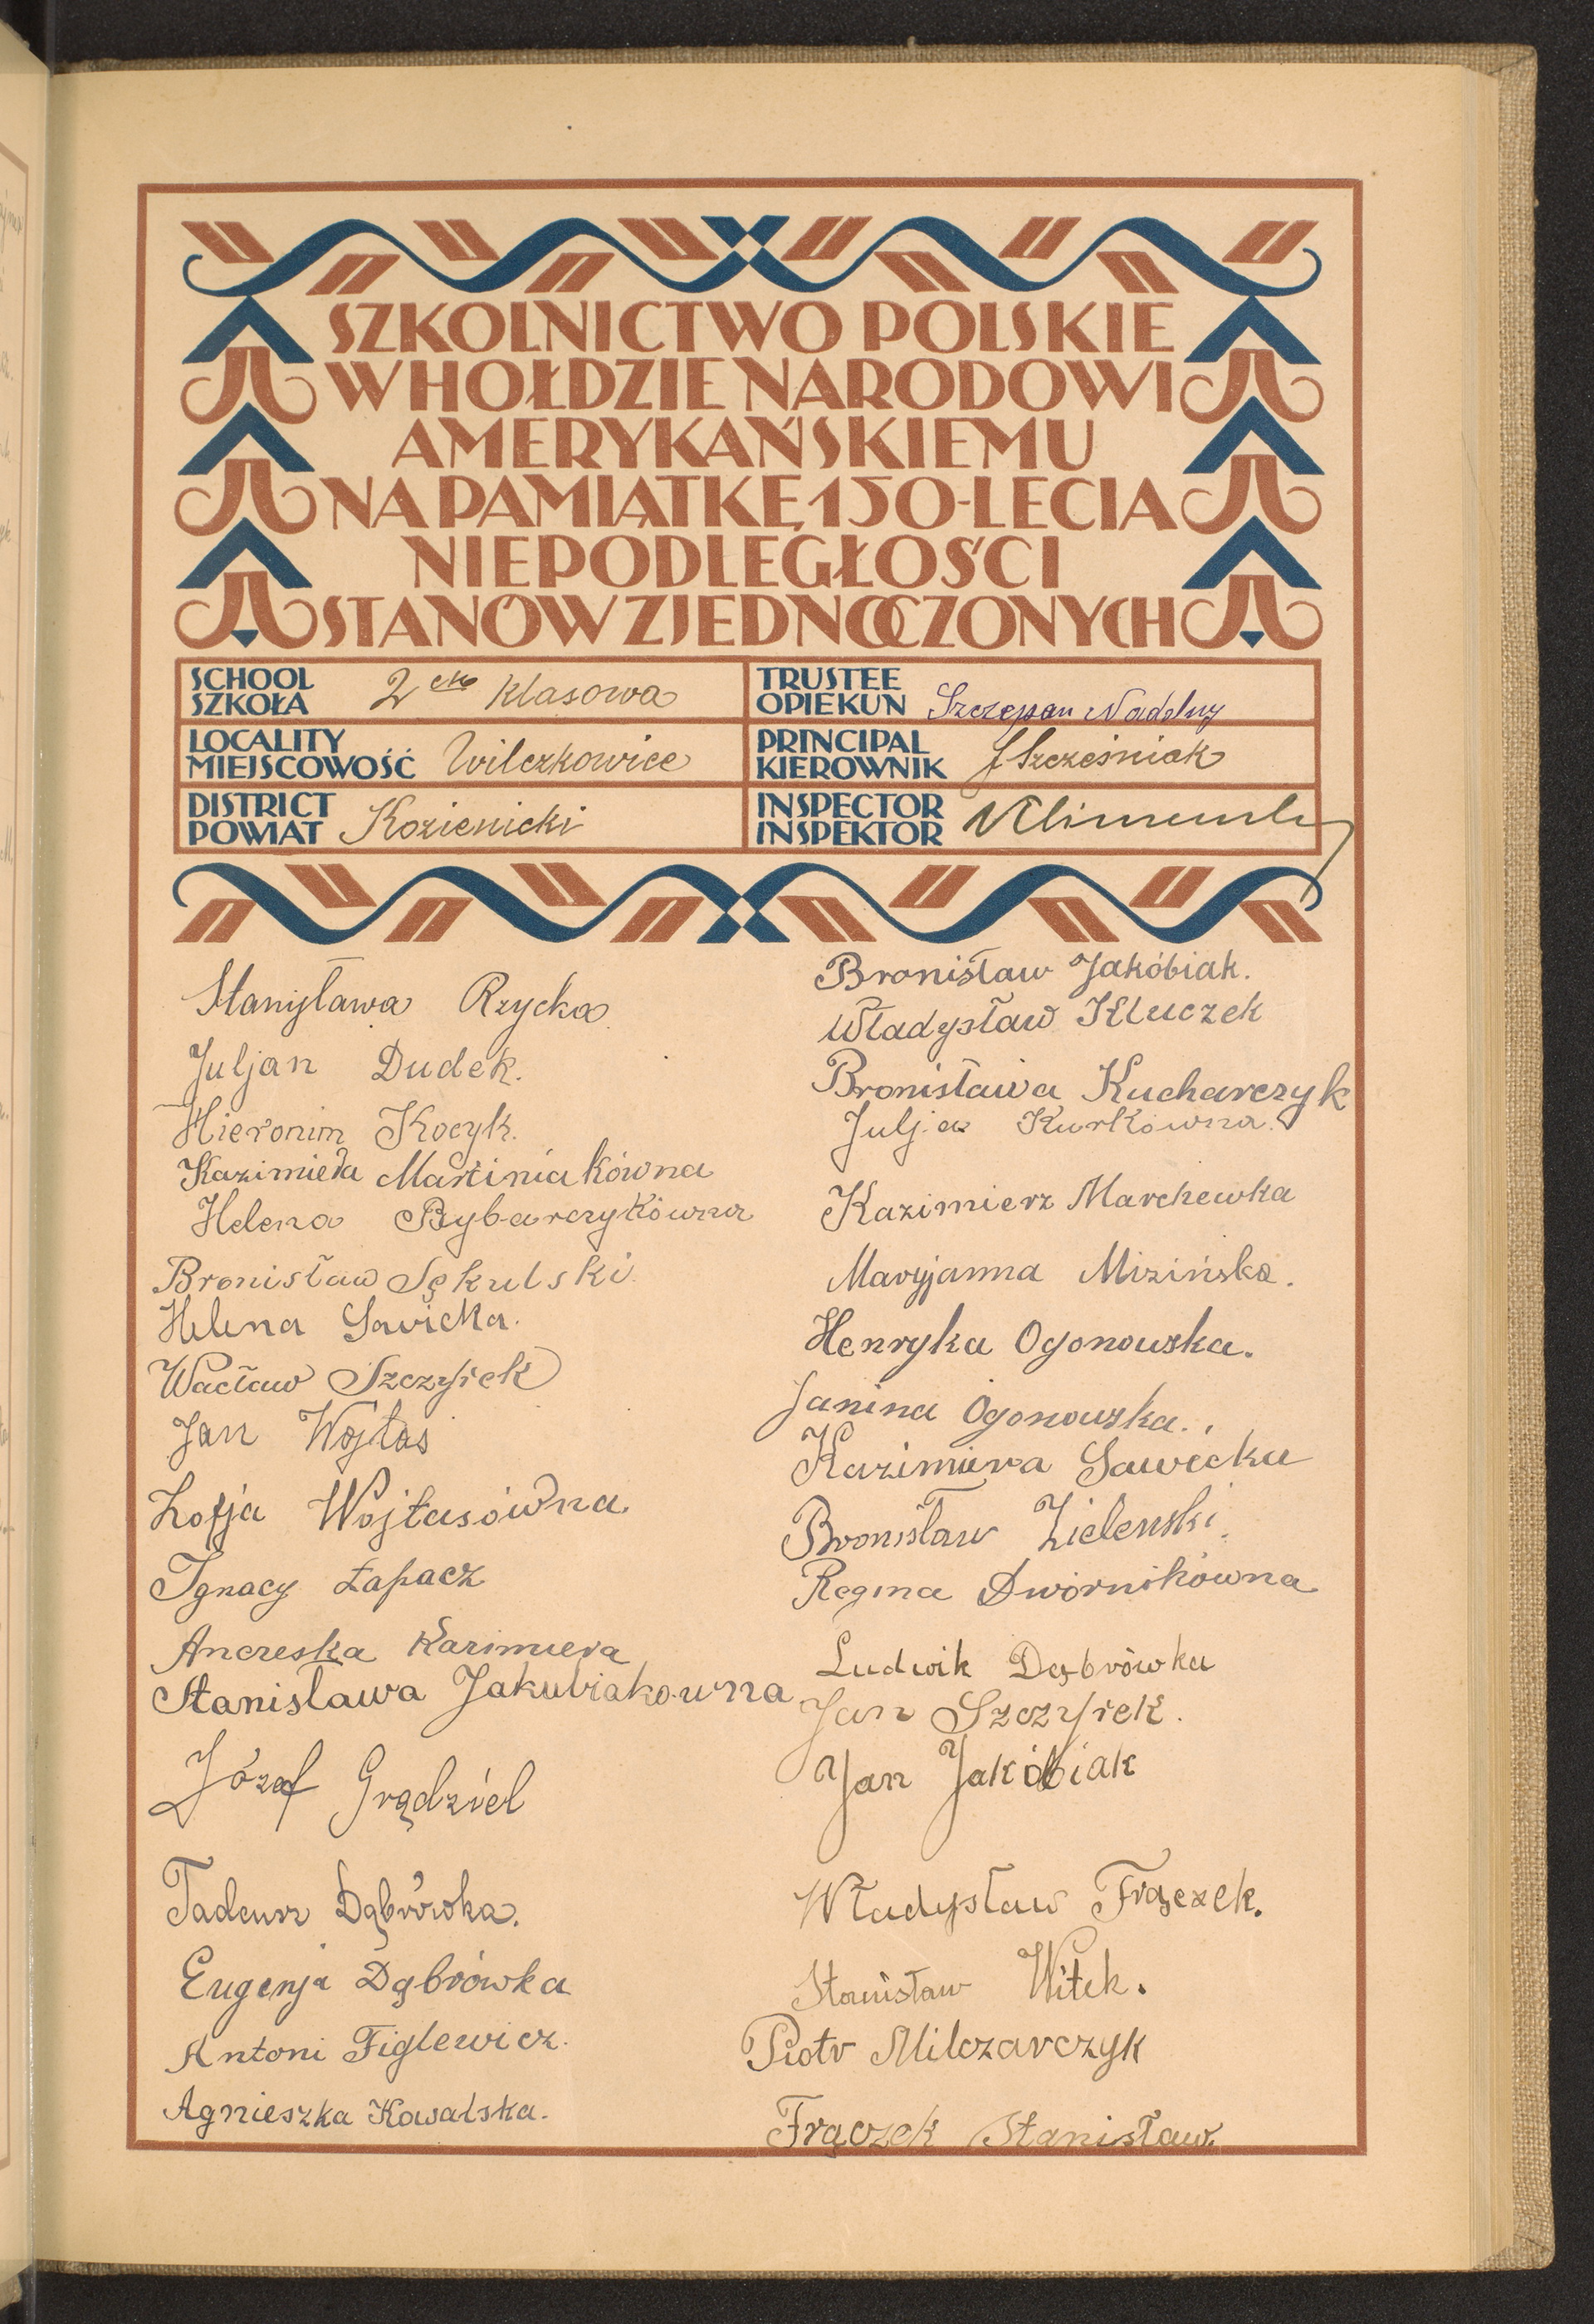 SZKOLNICTWO POLSKIE
W HOŁDZIE NARODOWI
AMERYKAŃSKIEMU
NA PAMIĄTKĘ 150-LECIA
NIEPODLEGŁOŚCI
STANÓW ZJEDNOCZONYCH
SCHOOL
SZKOŁA 2 klasowa
TRUSTEE
OPIEKUN Szczepan Nadolny
LOCALITY
MIEJSCOWOŚĆ Wilczkowice
PRINCIPAL
KIEROWNIK J Szcześniak
DISTRICT
POWIAT Kozienicki
INSPECTOR
INSPEKTOR
Stanisława Rzycka
Juljan Dudek.
Hieronim Kocyk.
Kazimiera Martiniakówna
Helena Rybarczykówna
Bronisław Sękulski.
Helena Sawicka.
Wacław Szczyrek
Jan Wojtas
Zofja Wojtasówna
Ignacy Łapacz
Anczeska Kazimiera
Stanisława Jakubiakowna
Józef Grądziel
Tadeusz Dąbrówka.
Eugenja Dąbrówka
Antoni Figlewicz.
Agnieszka Kowalska.
Bronisław Jakóbiak.
Władysław Kluczek
Bronisława Kucharczyk
Julja Kurkówna.
Kazimierz Marchewka
Maryjanna Mizińska.
Henryka Ogonowska.
Janina Ogonowska.
Kazimiera Sawicka
Bronisław Zieleński.
Regina Dwórnikówna
Ludwik Dąbrówka
Jan Szczyrek.
Jan Jakóbiak
Władysław Frączek.
Stanisław Witek.
Piotr Milczarczyk
Frączek Stanisław.